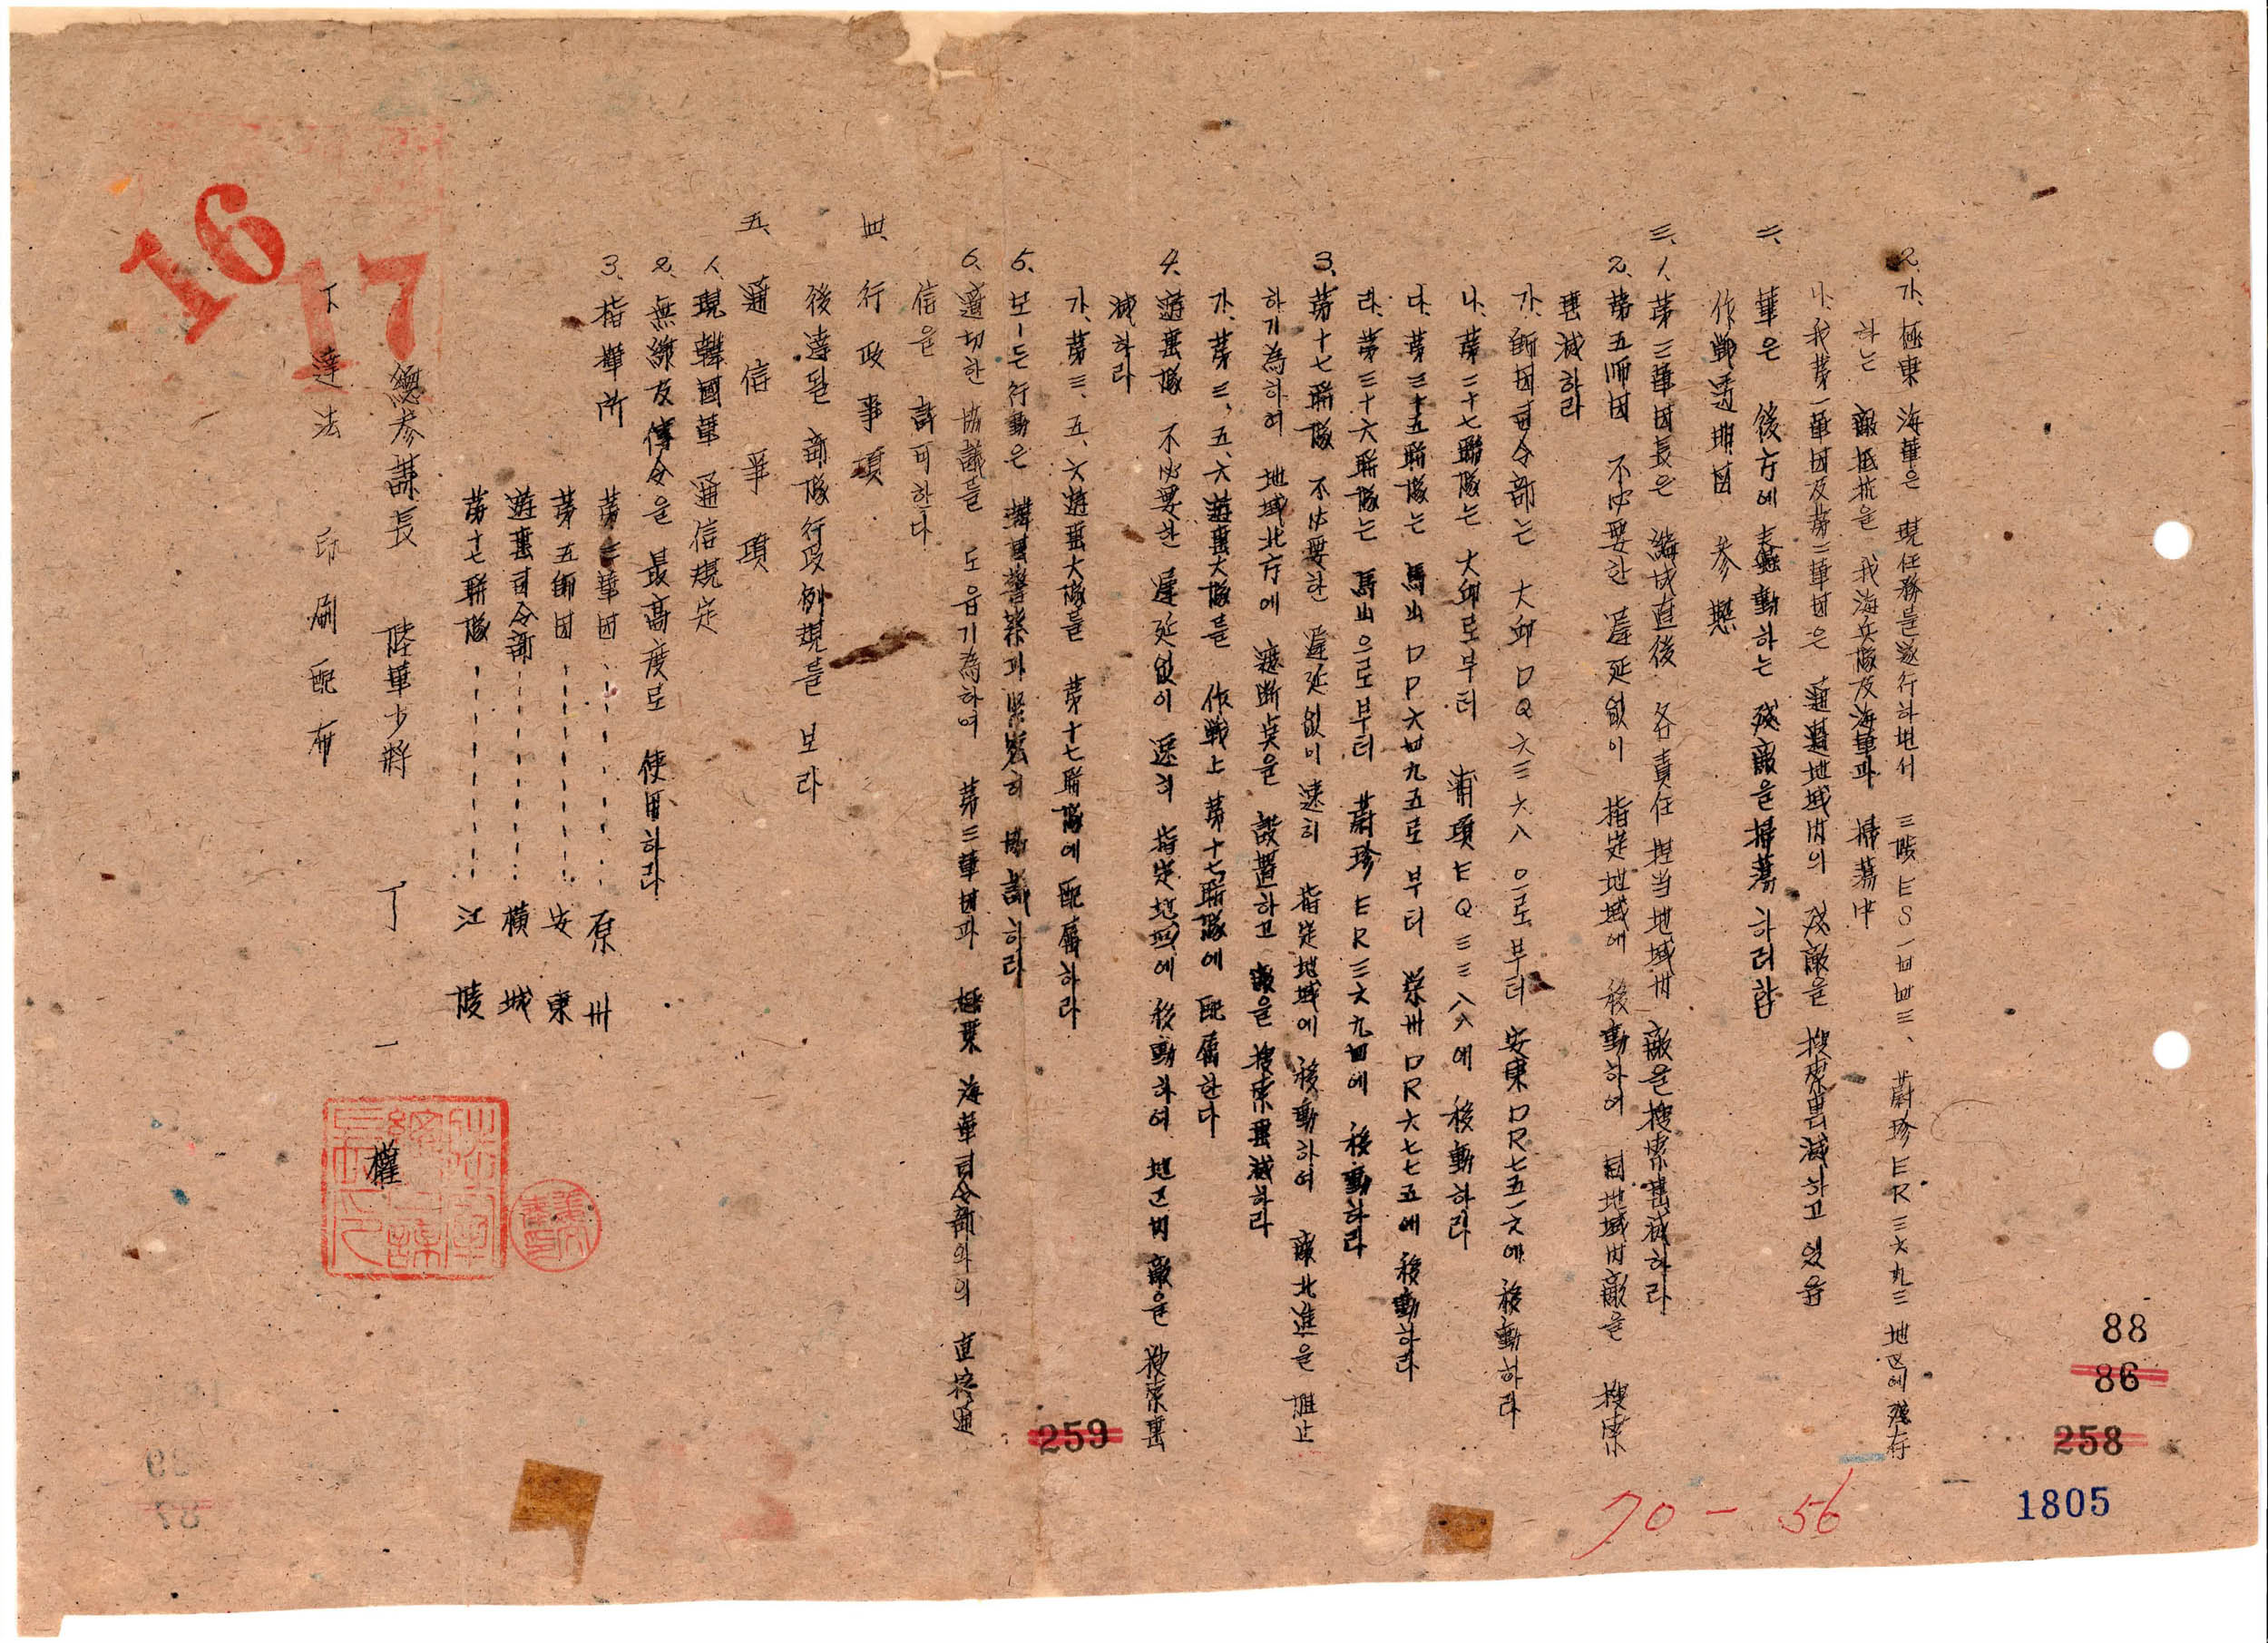 2、가、極東 海軍은 現任務를 遂行하면서 三陟 ES一四四三、蔚珍 ER三六九三 地区에 殘存
하는 敵抵抗을 我海兵隊及海軍과 掃蕩中
나、我第一軍団及第二軍団은 通過地域内의 残敵을 搜索襲滅하고 있음
二、軍은 後方에 蠢動하는 残敵을 掃蕩하려함
作戰透明図 参照
三、1、第三軍団長은 編成直後 各責任 担当地域内 敵을 搜索襲滅하라
2、第五師団 不必要한 遲延없이 指定地域에 移動하여 同地域内敵을 搜索
襲滅하라
가、師団司令部는 大邱 DQ六三六八 으로부터 安東 DR七五一六에 移動하라
나、第二十七聯隊는 大邱로부터 浦項 EQ三三八八에 移動하라
다、第三十五聯隊는 馬山 DP六四九五로 부터 榮州 DR六七七五에 移動하라
라、第三十六聯隊는 馬山으로부터 蔚珍 ER三六九四에 移動하라
3、第十七聯隊 不必要한 遲延없이 速히 指定地域에 移動하여 敵北進을 阻止
하기為하여 地域北方에 遮断点을 設置하고 敵을 搜索襲滅하라
가、第三、五、六遊擊大隊를 作戰上 第十七聯隊에 配属한다
4、遊擊隊 不必要한 遲延없이 速히 指定地区에 移動하여 地区内 敵을 搜索襲
滅하라
가、第三、五、六遊擊大隊를 第十七聯隊에 配属하라
5、모ー든 行動은 韓國警察과 緊密히 協議하라
6、適切한 協議를 도읍기為하여 第三軍団과 極東 海軍司令部와의 直接通
信을 許可한다
四、行政事項
後達될 部隊行政例規를 보라
五、通信事項
1、現韓國軍 通信規定
2、無線及傳令을 最高度로 使用하라
3、指揮所
第三軍団 - - - - - - - 原州
第五師団 - - - - - - - 安東
遊擊司令部 - - - - - - - 橫城
第十七聯隊 - - - - - - - 江陵
總參謀長 陸軍少將 丁 一 權
下達法 印刷配布
16
17
88
86
258
259
1805
70 - 56